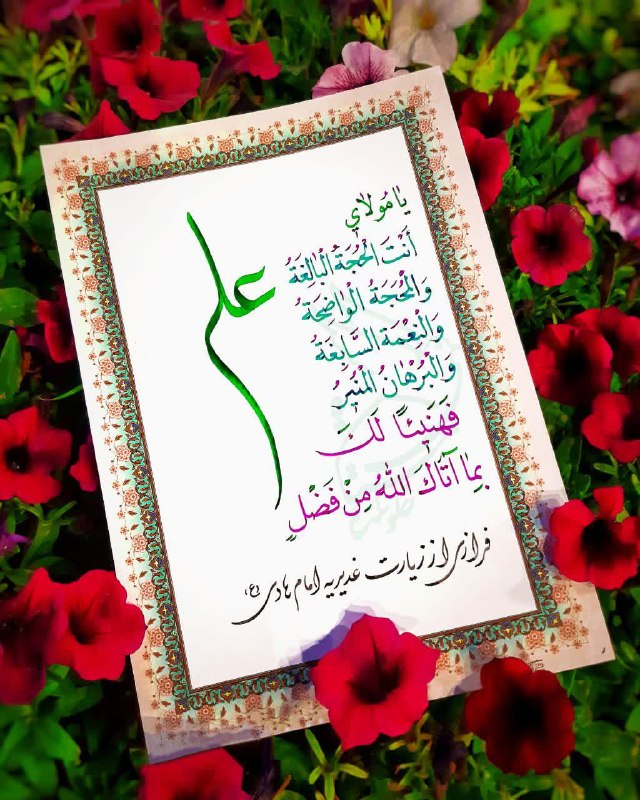 يَا مُولَاي
أَنْتَ الْحُجَةُ الْبَالِغَةُ
وَالْمَحَجَةُ الْوَاضِحَةُ
وَالْنِعْمَةُ السَّابِغَةُ
وَالْبُرْهَانُ الْمُنِيرُ
فَهَنِيئًا لَكَ
بِمَا آتَاكَ اللهُ مِنْ فَضْلٍ
علی
فرازی از زیارت غدیریه امام هادی (ع)